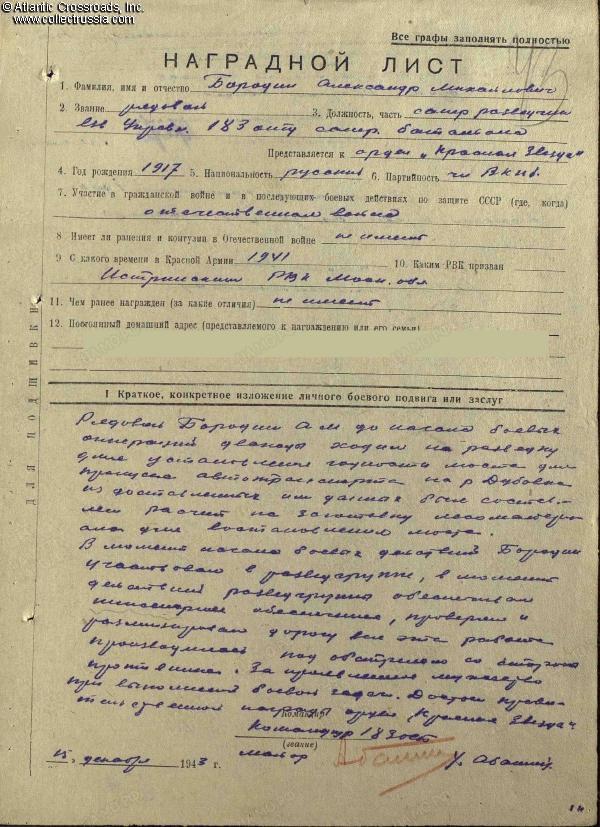 © Atlantic Crossroads, Inc.
www.collectrussia.com
Все графы заполнять полностью
НАГРАДНОЙ ЛИСТ
1. Фамилия, имя и отчество Бородин Александр Михайлович
2. Звание рядовой 3. Должность, часть сапер разведчик
183 сапер. батальона
Представляется к орден „Красная Звезда"
4. Год рождения 1917 5. Национальность русский 6. Партийность чл ВКПб.
7. Участие в гражданской войне и в последующих боевых действиях по защите СССР (где, когда)
отечественная война
8 Имеет ли ранения и контузии в Отечественной войне не имеет
9 С какого времени в Красной Армии 1941 10. Каким РВК призван
Истринским РВК Моск. обл
11. Чем ранее награжден (за какие отличия) не имеет
12. Постоянный домашний адрес (представляемого к награждению или его семьи)
ДЛЯ ПОДШИВКИ
I Краткое, конкретное изложение личного боевого подвига или заслуг
Рядовой Бородин А м до начала боевых
операций дважды ходил на разведку
для установления годности моста для
пропуска автотранспорта на р Дубовка
из доставленных им данных был состав-
лен расчет на заготовку лесоматери-
ала для восстановления моста.
В момент начала боевых действий Бородин
участвовал в разведгруппе, в момент
действий разведгруппы обеспечивал
инженерное обеспечение, проверял и
разминировал дорогу вся эта работа
производилась под обстрелом со стороны
противника. За проявленное мужество
при выполнении боевой задачи. Достоин правит-
ельственной награды орден „Красная Звезда"
Командир
Командир 183
(звание)
майор
15, декабря 1943 г.